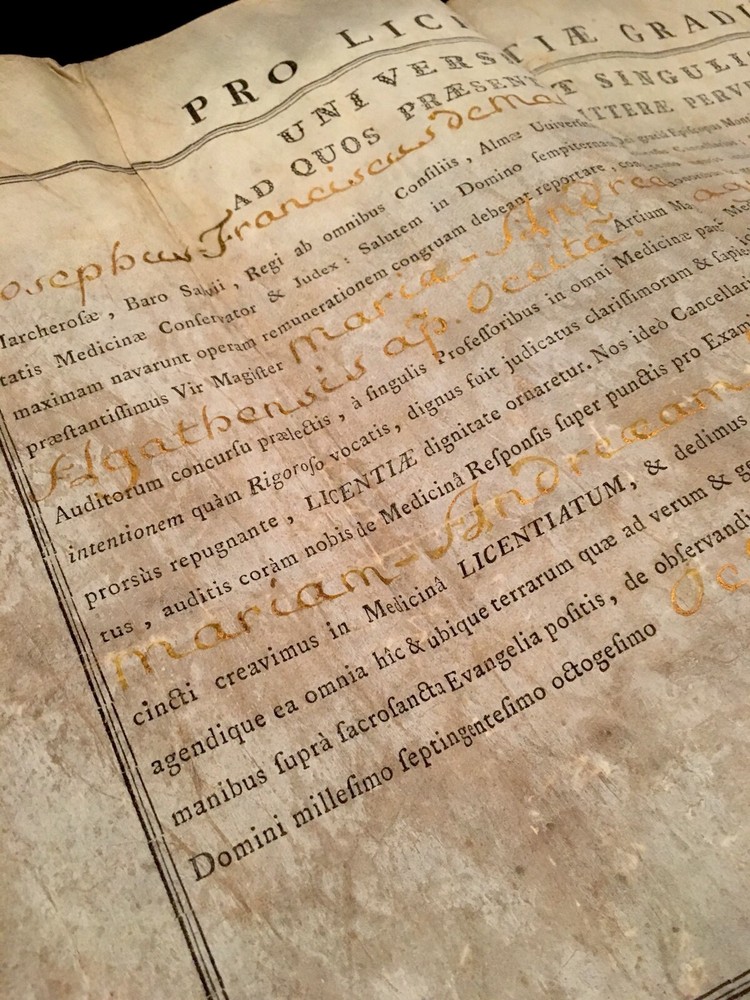 PRO LICENTIÆ GRADU
UNIVERSIS ET SINGULIS
AD QUOS PRÆSENTES LITTERÆ PERVE
osephus Franciscus de Ma
Marcherosæ, Baro Salvii, Regi ab omnibus Consiliis, Almæ Univers
tatis Medicinæ Conservator & Judex: Salutem in Domino sempiternam
maximam navarunt operam remunerationem congruam debeant reportare,
præstantissimus Vir Magister Maria-Andrea
Agathensis ap. Occitã. Artium Ma
Auditorum concursu prælectis, à singulis Professoribus in omni Medicinæ parte Me
intentionem quàm Rigoroso vocatis, dignus fuit judicatus clarissimorum & sapie
prorsùs repugnante, LICENTIÆ dignitate ornaretur. Nos ideò Cancellari
tus, auditis coràm nobis de Medicinâ Responsis super punctis pro Exam
Mariam-Andreaam
cincti creavimus in Medicinâ LICENTIATUM, & dedimus
agendique ea omnia hîc & ubique terrarum quæ ad verum & ge
manibus suprà sacrosancta Evangelia positis, de observandi
Domini millesimo septingentesimo octogesimo Oct